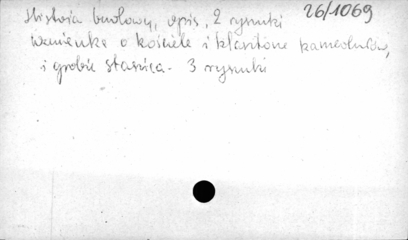 Historia budowy, opis, 2 rysunki 26/1069
wzmianka o kościele i klasztorze kamedułów,
i grobie Staszica - 3 rysunki